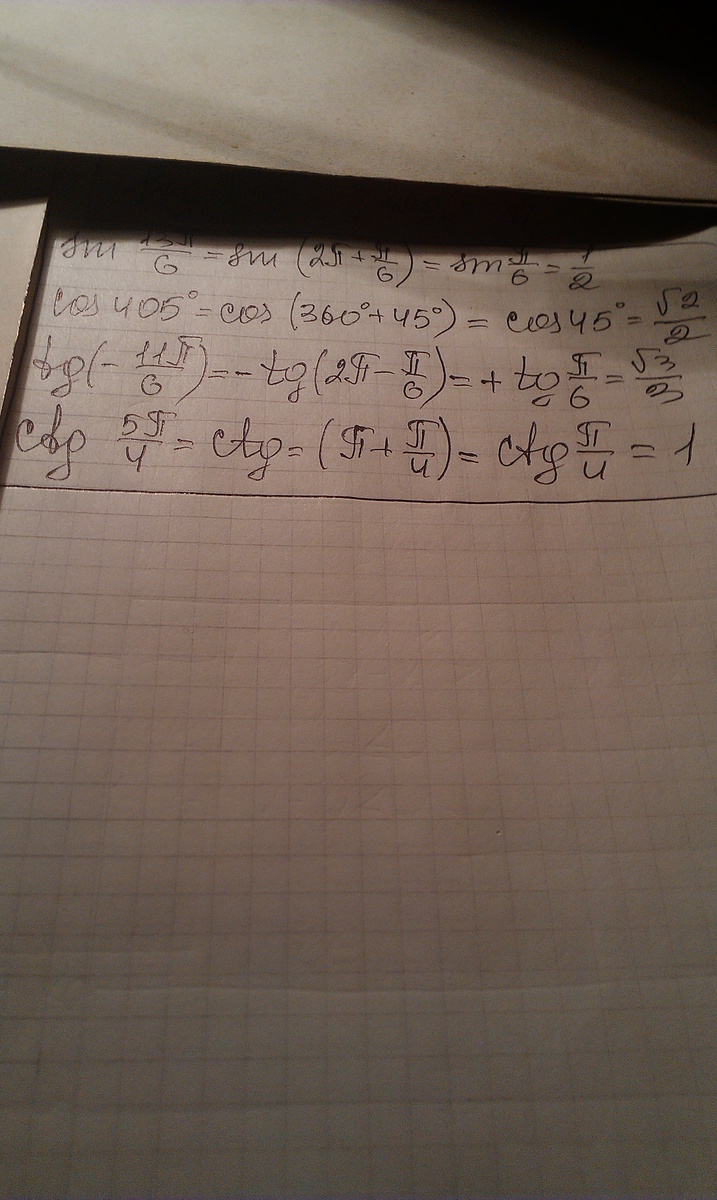 sin 13π/6 = sin (2π + π/6) = sin π/6 = 1/2
cos 405° = cos (360° + 45°) = cos 45° = √2/2
tg(- 11π/6) = - tg(2π - π/6) = + tg π/6 = √3/3
ctg 5π/4 = ctg = (π + π/4) = ctg π/4 = 1